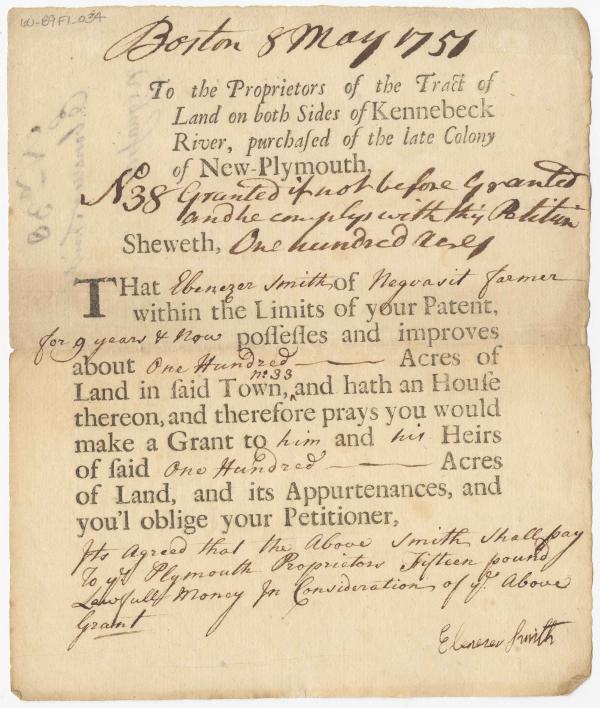 LW-89F1-034
Boston 8 May 1751
To the Proprietors of the Tract of
Land on both Sides of Kennebeck
River, purchaſed of the late Colony
of New-Plymouth,
No 38 Granted if not before Granted
and he complys with this Petition
Sheweth, One hundred acres
THat Ebenezer Smith of Neguasit farmer
within the Limits of your Patent,
for 9 years & Now poſſeſſes and improves
about One Hundred Acres of
no. 33
Land in ſaid Town, ‸ and hath an Houſe
thereon, and therefore prays you would
make a Grant to him and his Heirs
of ſaid One Hundred Acres
of Land, and its Appurtenances, and
you'l oblige your Petitioner,
Its Agreed that the Above Smith Shall pay
To ye Plymouth Proprietors Fifteen pound
Lawfull Money In Consideration of ye Above
Grant
Ebenezer Smith